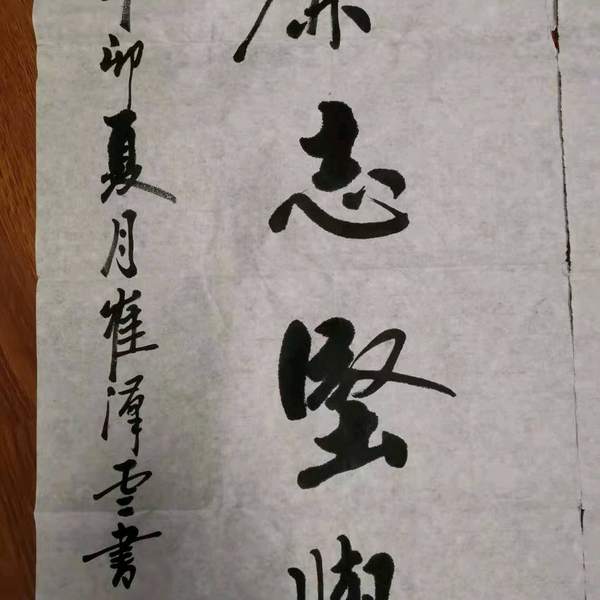 志堅
卯夏月崔澤雲書